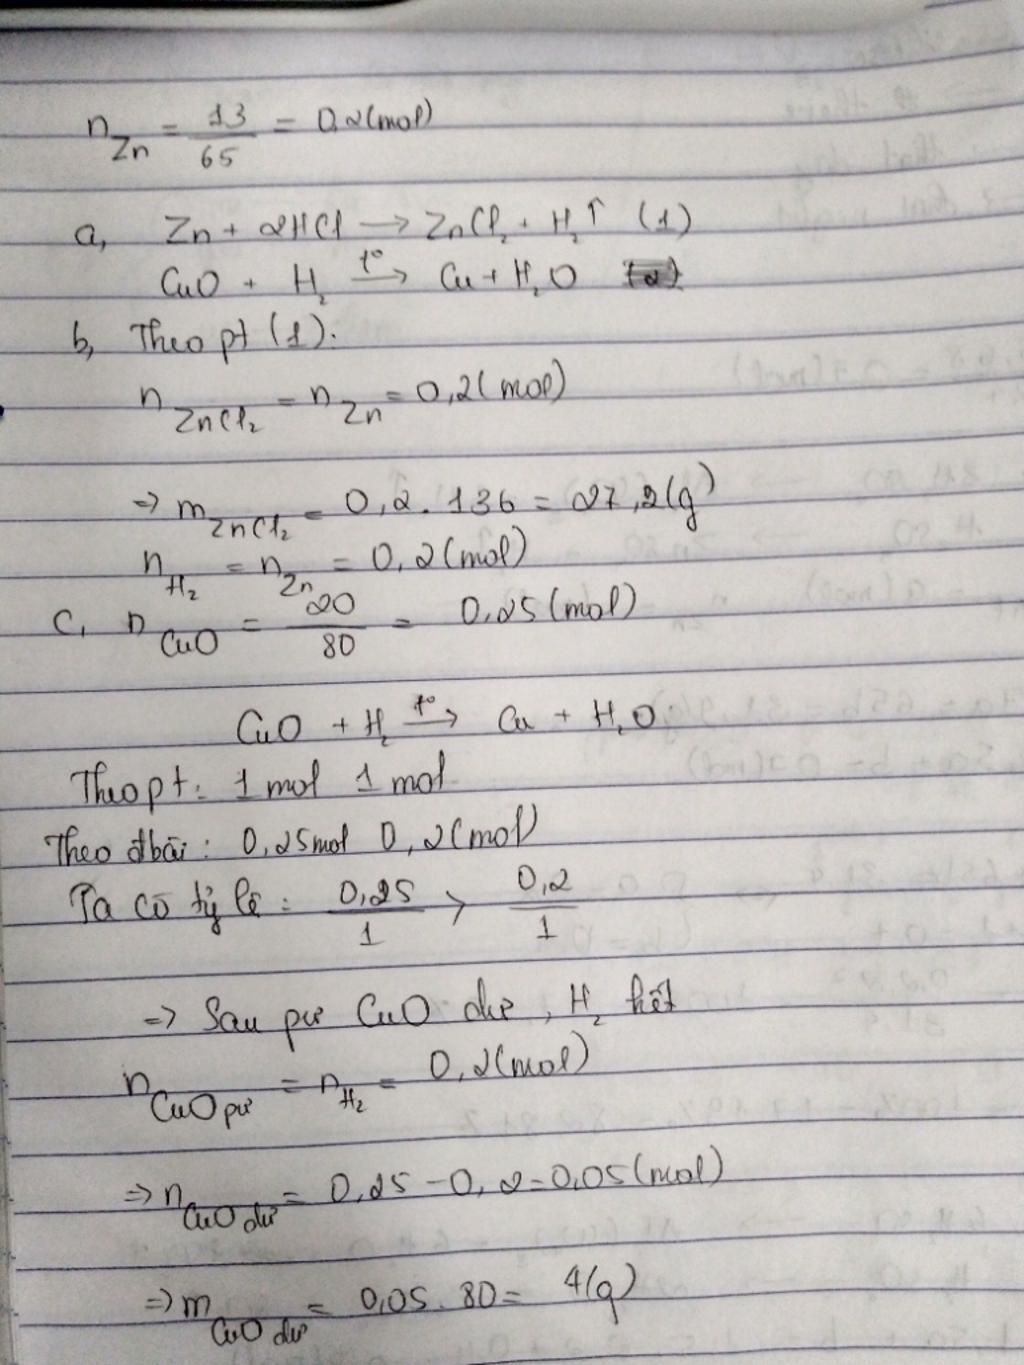 n_Zn = 13/65 = 0,2(mol)
a, Zn + 2HCl → ZnCl₂ + H₂↑ (1)
CuO + H₂ —t°→ Cu + H₂O (2)
b, Theo pt (1):
n_ZnCl₂ = n_Zn = 0,2(mol)
=> m_ZnCl₂ = 0,2.136 = 27,2(g)
n_H₂ = n_Zn = 0,2(mol)
c, n_CuO = 20/80 = 0,25(mol)
CuO + H₂ —t°→ Cu + H₂O
Theo pt: 1 mol 1 mol
Theo đbài: 0,25mol 0,2(mol)
Ta có tỷ lệ: 0,25/1 > 0,2/1
=> Sau pư CuO dư, H₂ hết
n_CuO pư = n_H₂ = 0,2(mol)
=> n_CuO dư = 0,25 - 0,2 = 0,05(mol)
=> m_CuO dư = 0,05.80 = 4(g)